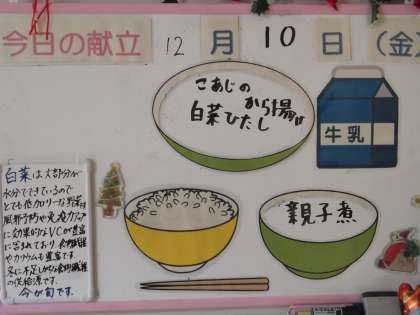 今日の献立 12月10日(金)
こあじの
から揚げ
白菜ひたし
牛乳
親子煮
白菜は大部分が
水分でできているので
とても低カロリーな野菜。
風邪予防や免疫力アップ
に効果的なVCが豊富
に含まれており食物繊維
やカリウムも豊富です。
冬に不足しがちな食物繊維
の供給源です。
今が旬です。